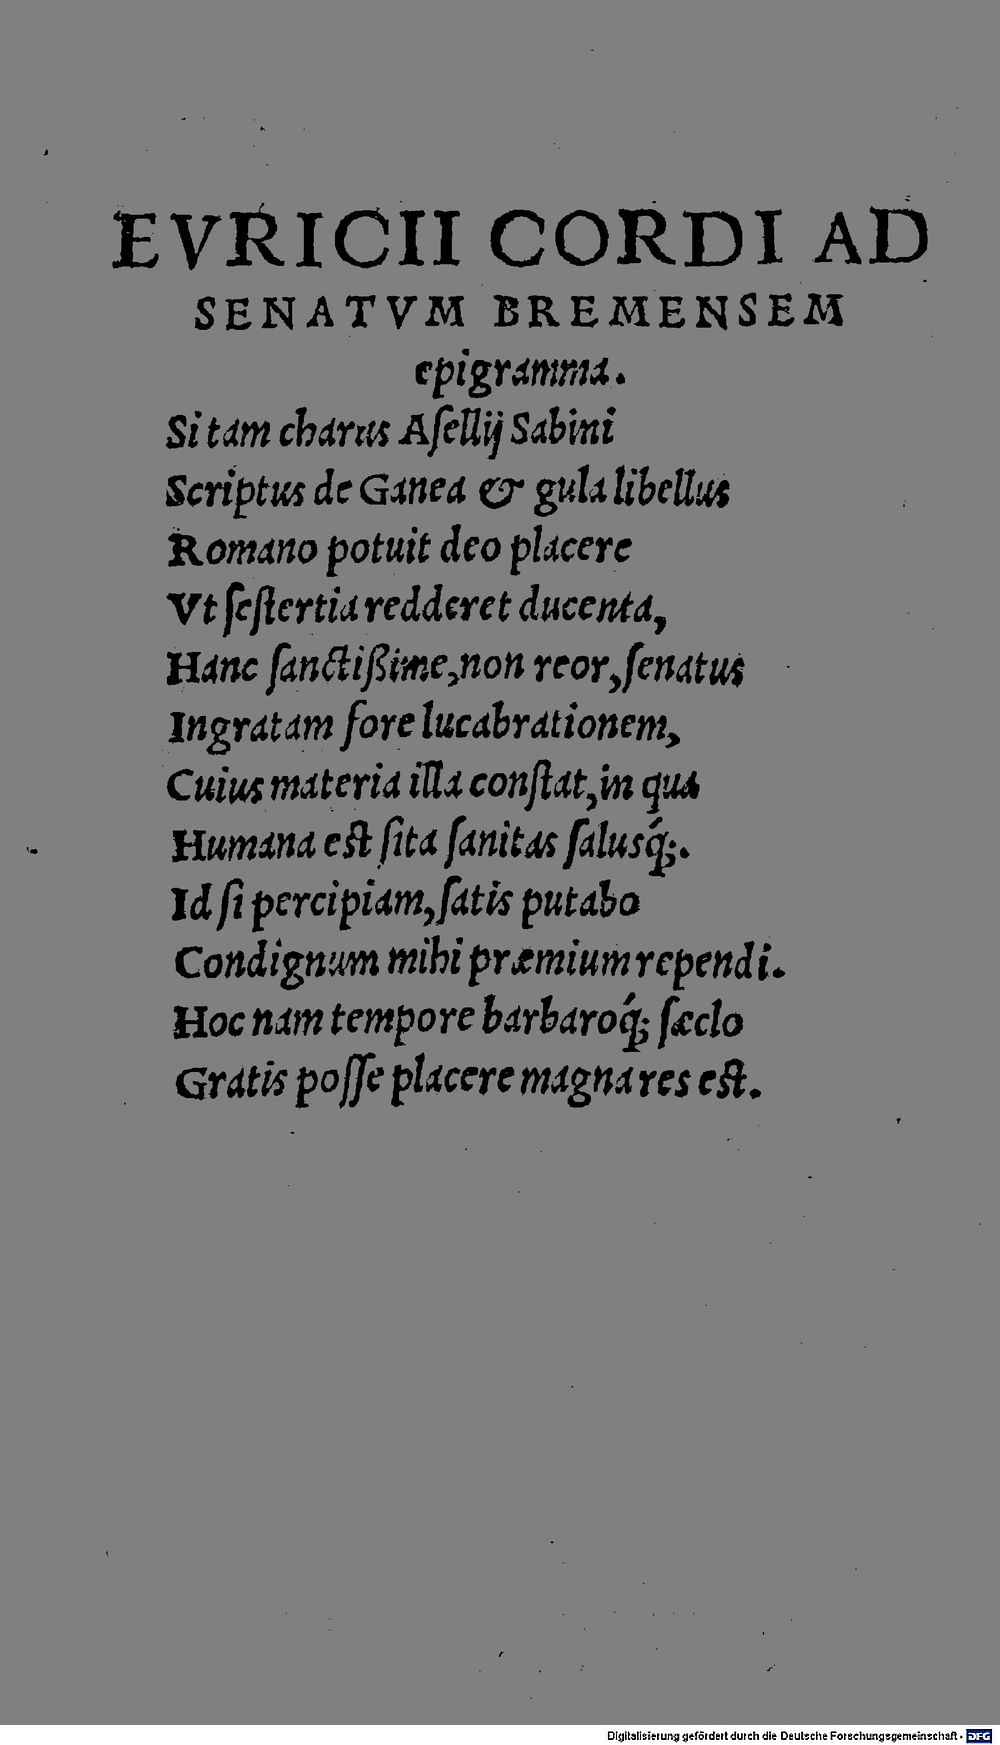 EVRICII CORDI AD
SENATVM BREMENSEM
epigramma.
Si tam charus Aſellij Sabini
Scriptus de Ganea & gula libellus
Romano potuit deo placere
Vt ſeſtertia redderet ducenta,
Hanc ſanctißime, non reor, ſenatus
Ingratam fore lucabrationem,
Cuius materia illa conſtat, in qua
Humana est ſita ſanitas ſalusq́;.
Id ſi percipiam, ſatis putabo
Condignum mihi præmium rependi.
Hoc nam tempore barbaroq́; ſæclo
Gratis poſſe placere magna res est.
Digitalisierung gefördert durch die Deutsche Forschungsgemeinschaft - DFG